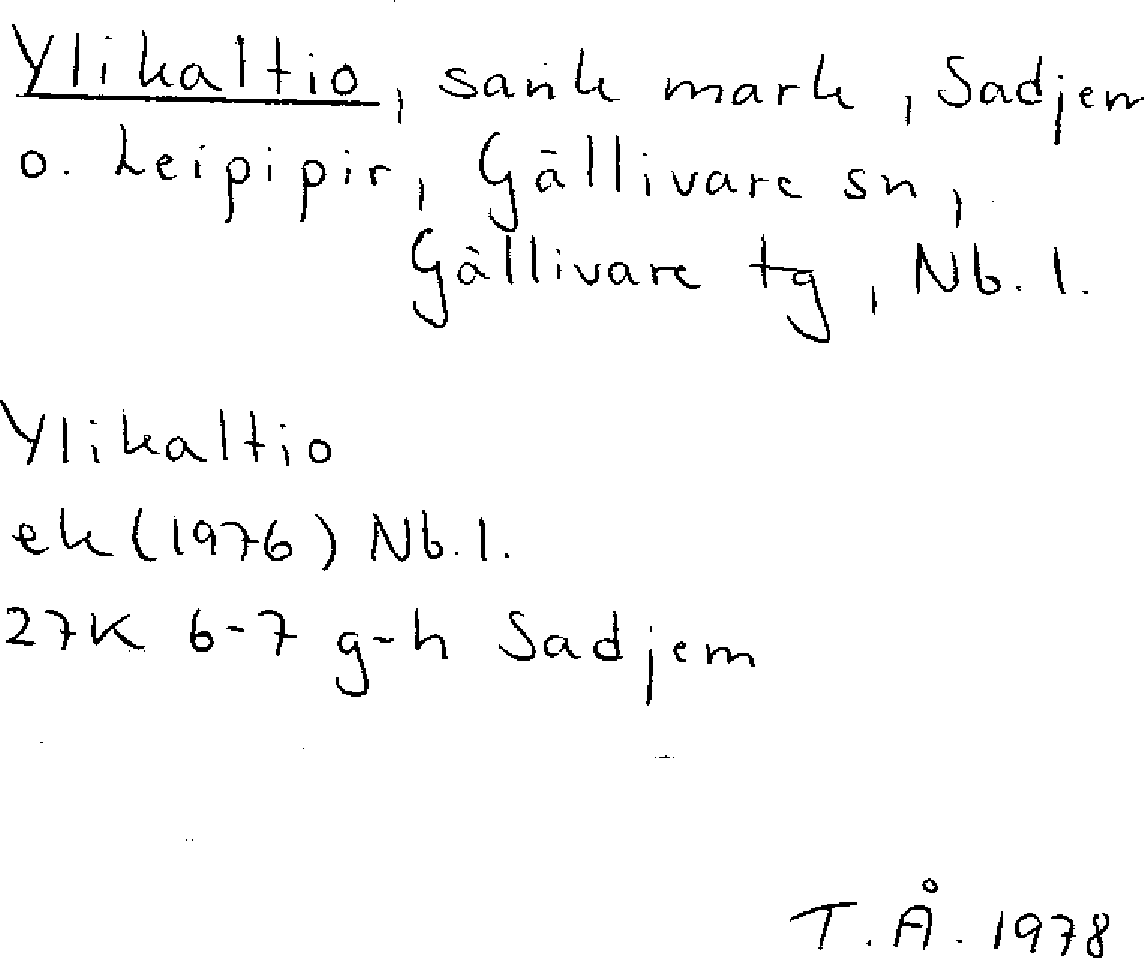 Ylikaltio, sank mark, Sadjem
o. Leipipir, Gällivare sn,
Gällivare tg, Nb. l.
Ylikaltio
ek (1976) Nb. l.
27K 6-7 g-h Sadjem
T. Å. 1978